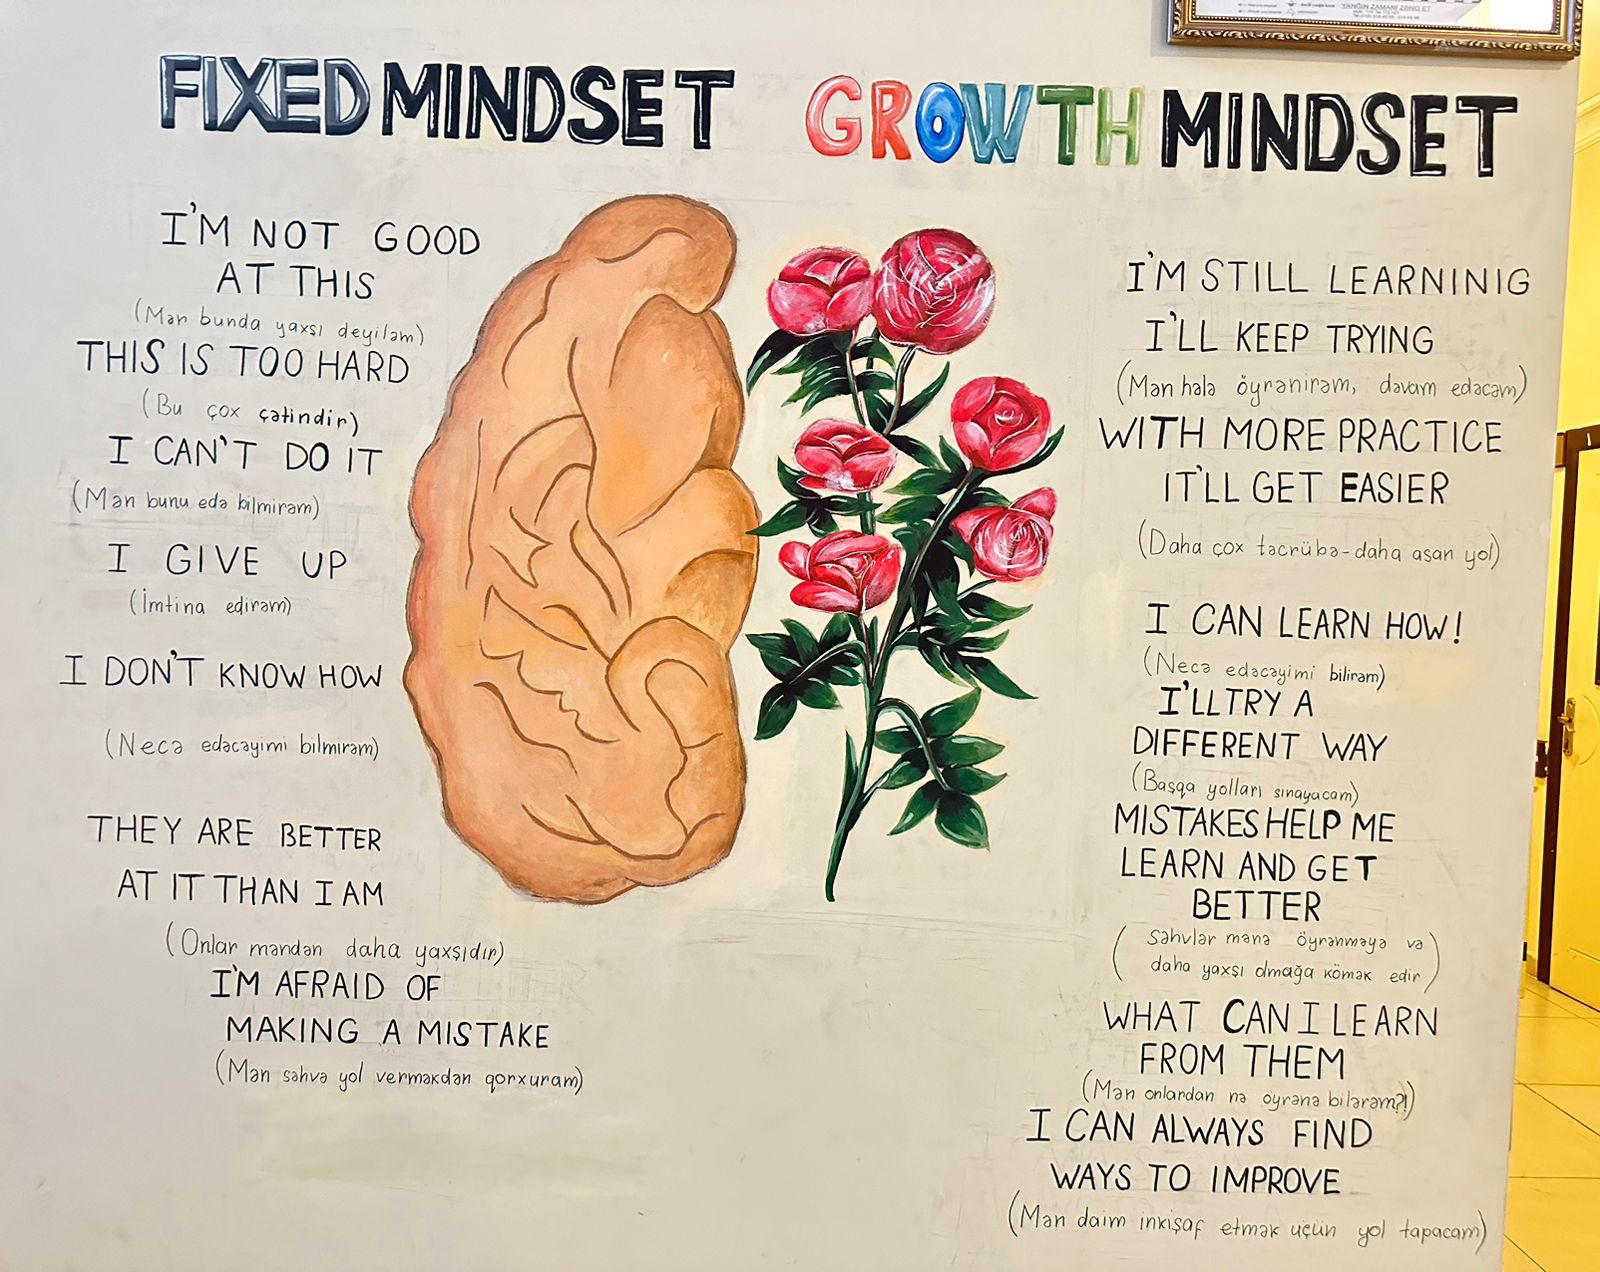 YANĞIN ZAMANI ZƏNG ET
FIXED MINDSET
I'M NOT GOOD
AT THIS
(Mən bunda yaxşı deyiləm)
THIS IS TOO HARD
(Bu çox çətindir)
I CAN'T DO IT
(Mən bunu edə bilmirəm)
I GIVE UP
(İmtina edirəm)
I DON'T KNOW HOW
(Necə edəcəyimi bilmirəm)
THEY ARE BETTER
AT IT THAN I AM
(Onlar məndən daha yaxşıdır)
I'M AFRAID OF
MAKING A MISTAKE
(Mən səhvə yol verməkdən qorxuram)
GROWTH MINDSET
I'M STILL LEARNINIG
I'LL KEEP TRYING
(Mən hələ öyrənirəm, davam edəcəm)
WITH MORE PRACTICE
IT'LL GET EASIER
(Daha çox təcrübə-daha asan yol)
I CAN LEARN HOW!
(Necə edəcəyimi bilirəm)
I'LL TRY A
DIFFERENT WAY
(Başqa yolları sınayacam)
MISTAKES HELP ME
LEARN AND GET
BETTER
(Səhvlər mənə öyrənməyə və
daha yaxşı olmağa kömək edir)
WHAT CAN I LEARN
FROM THEM
(Mən onlardan nə öyrənə bilərəm?!)
I CAN ALWAYS FIND
WAYS TO IMPROVE
(Mən daim inkişaf etmək üçün yol tapacam)